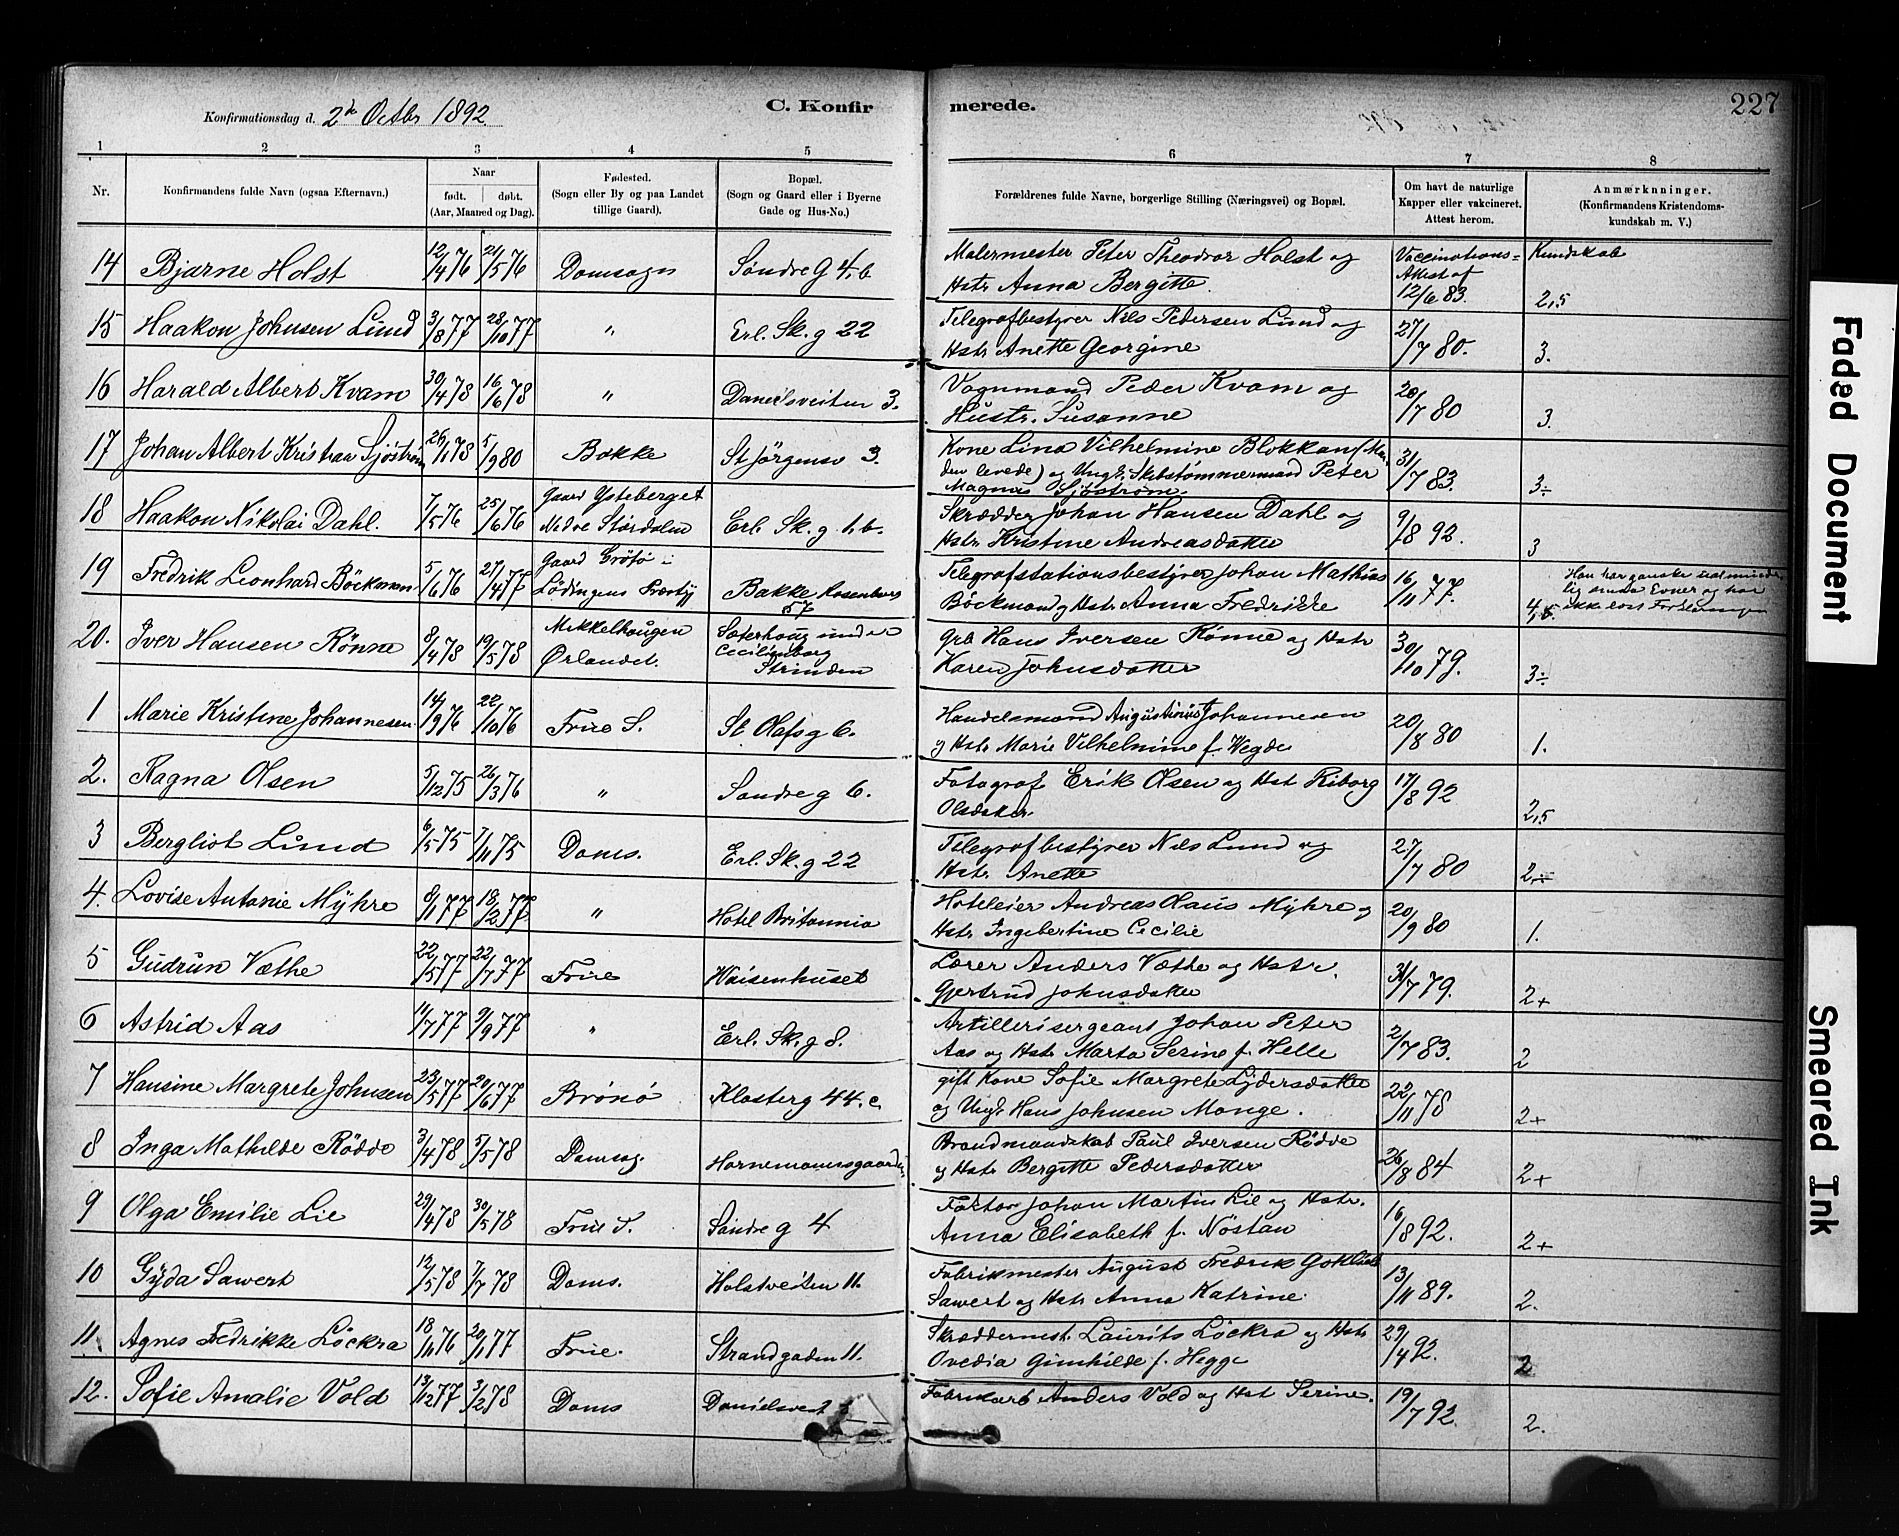 Konfirmationsdag d. 2den Octbr 1892
C. Konfirmerede.
227
1 2 3 4 5 6 7 8
Nr. Konfirmandens fulde Navn (ogsaa Efternavn.) Naar født. døbt. (Aar, Maaned og Dag). Fødested. (Sogn eller By og paa Landet tillige Gaard). Bopæl. (Sogn og Gaard eller i Byerne Gade og Hus-No.) Forældrenes fulde Navne, borgerlige Stilling (Næringsvei) og Bopæl. Om havt de naturlige Kapper eller vakcineret. Attest herom. Anmærknninger. (Konfirmandens Kristendomskundskab m. V.)
14 Bjarne Holst 12/4 76 21/5 76 Domsogn Søndre g 4. b Malermester Peter Theodror Holst og Hstr Anna Bergitte. Vaccinations= Attest af 12/6 83. Kundskab 2,5
15 Haakon Johnsen Lund 3/8 77 28/10 77 " Erl. Sk. g 22 Telegrafbestyrer Nils Pedersen Lund og Hstr Anette Georgine 27/7 80. 3.
16 Harald Albert Kvam 30/4 78 16/6 78 " Danielsveiten 3. Vognmand Peder Kvam og Hustr. Susanne 28/7 80 3.
17 Johan Albert Kristian Sjöström 26/1 78 5/9 80 Bakke St Jørgensv 3. Kone Lina Vilhelmine Blokkan (Manden levede) og Ungk. Skibstømmermand Peter Magnus Sjöström. 31/7 83. 3÷
18 Haakon Nikolai Dahl. 7/5 76 25/6 76 Gaard Ysteberget Nedre Stördalen Erl. Sk. g 1. b. Skrædder Johan Hansen Dahl og Hstr Kristine Andreasdatter 9/8 92. 3
19 Fredrik Leonhard Böckman 5/6 76 27/4 77 Gaard Gröto i Lödingens Præstgj Bakke Rosenborg 57 Telegrafstationsbestyrer Johan Mathias Böckman og Hstr Anna Fredrikke 16/11 77. 4,5. Han har ganske ualmindelig smaa Evner og har ikke
20. Iver Hansen Rönne 8/4 78 19/5 78 Mekkelhaugen Ørlandet. Sæterhaug under Cecilienborg Strinden Grb Hans Iversen Rönne og Hstr Karen Johnsdatter 30/10 79. 3÷
1 Marie Kristine Johannesen 14/9 76 22/10 76 Frue S. St Olafs g 6. Handelsmand Augustinus Johannesen og Hstr Marie Vilhelmine f. Wegde 20/8 80 1.
2. Ragna Olsen 5/12 75 26/3 76 " Søndre g 6. Fotograf Erik Olsen og Hst Riborg Olsdatter 17/8 92 2,5
3 Bergliot Lund 6/5 75 7/11 75 Doms. Erl. Sk. g 22 Telegrafbestyrer Nils Lund og Hstr Anette 27/7 80 2÷
4. Lovise Antonie Myhre 8/1 77 18/2 77 " Hotel Britannia Hoteleier Andreas Olaus Myhre og Hstr Ingebertine Cecilie 20/9 80 1.
5 Gudrun Væthe 22/5 77 22/7 77 Frue Waisenhuset Lærer Anders Væthe og Hstr. Gjertrud Johnsdatter 31/7 79. 2+
6 Astrid Aas 11/7 77 9/9 77 " Erl. Sk. g 8. Artillerisergeant Johan Peter Aas og Hstr Marta Serine f. Helle 2/7 83. 2
7 Hansine Margrete Johnsen 23/5 77 20/6 77 Brönö Klosterg 44. c. gift Kone Sofie Margrete Lydersdatter og Ungk Hans Johnsen Monge. 22/11 78 2+
8 Inga Mathilde Rödde 3/4 78 5/5 78 Domsog. Hornemansgaarden Brandmandskab Paul Iversen Rödde og Hstr Bergitte Pedersdatter 26/8 84 2+
9 Olga Emilie Lie 29/4 78 30/5 78 Frue S. Søndre g 4 Faktor Johan Martin Lie og Hstr. Anna Elisabeth f. Nöstan 16/8 92. 2+
10 Gyda Sawert 12/5 78 7/7 78 Doms. Holstveiten 11. Fabrikmester August Fredrik Gotlieb Sawert og Hstr Anna Katrine. 13/11 89. 2.
11. Agnes Fredrikke Löckra 18/11 76 20/1 77 Frue. Strandgaden 11. Skræddermest. Laurits Löckra og Hstr Ovedia Gunhilde f. Hegge 29/4 92. 2
12. Sofie Amalie Vold 13/12 77 3/2 78 Doms Danielsveit 3 Fabrikarb Anders Vold og Hst Serine. 19/7 92. 2.
Faded Document
Smeared Ink